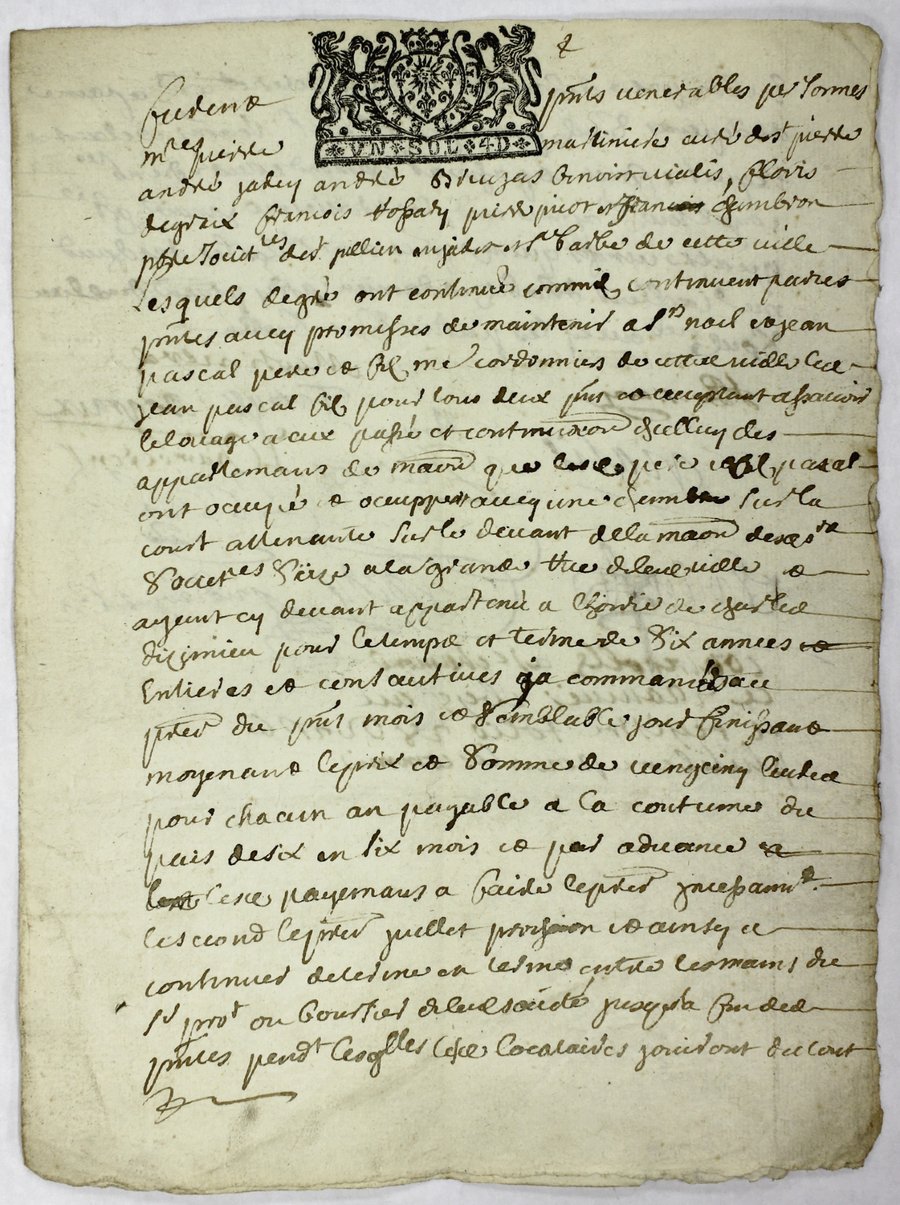 VN · SOL · 4D
furent pnts venerables personnes
mre pierre martiniere curé de st pierre
andré jabey andré benoit vialis, floris
degraix francois pierre picot et francois chambron
pbre societres de st jullien en jades et ste barbe de cette ville
Lesquels de gré ont continué comme continuent par ces
pntes avecq promesses de maintenir a srs noel et jean
pascal pere et fils mes cordonnies de cette ville led
jean pascal fils pour tous deux pnt et acceptant assavoir
le louage a eux passé et continuaon dicelluy des
appartemans de maon que lesd pere et fils pascal
ont occupé et occuppent avecq une chambre sur la
court attenante sur le devant de la maon desd srs
societres size a la grande rue de lad ville et
ayant cy devant appartenu a de charles
pour le temps et terme de six annees
Entieres et consecutives qa commancé au
premr du pnt mois et semblable jour finissant
moyenant le prix et somme de vengcinq livres
pour chacun an payable a la coutume du
pais de six en six mois et par advance
lesd payemans a faire le premr incessamt
le second le premr juillet prochain et ainsy a
continuer de terme en terme entre les mains du
sr procr ou boursier de lad socièté jusqu'a fin des
pntes pendt lesqlles lesd locataires jouiront du tout